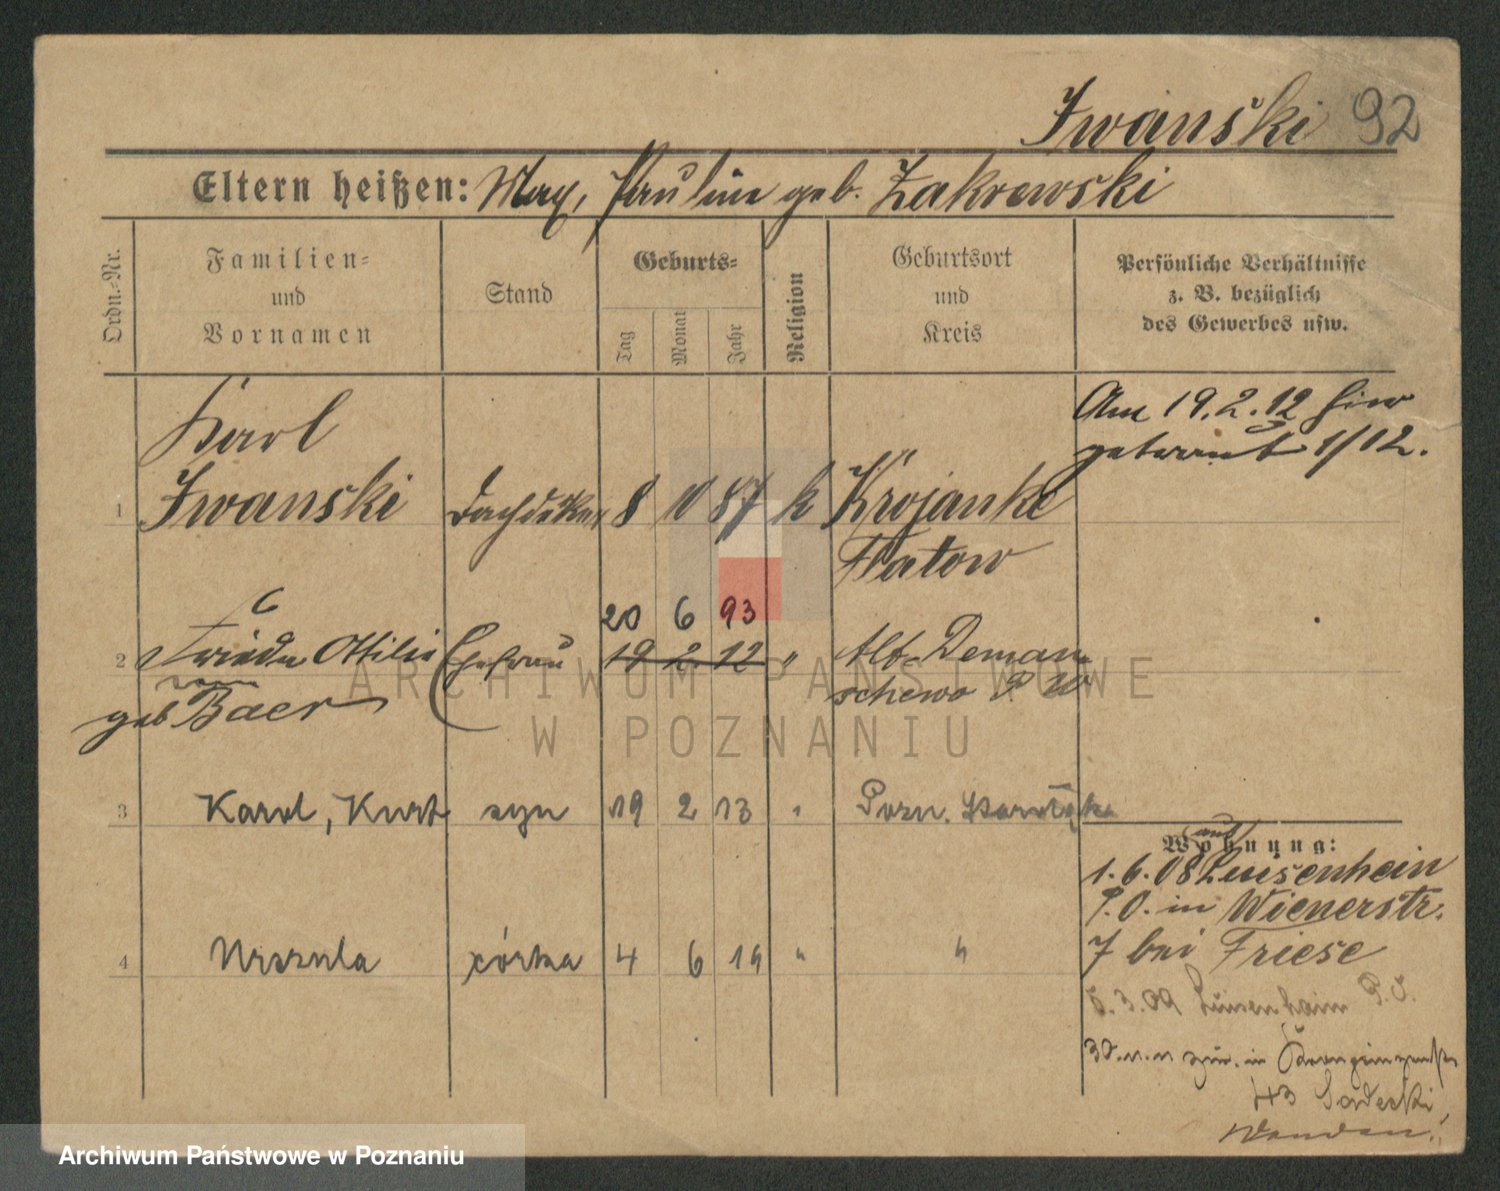 Iwanski 92
Eltern heißen: Max, Pauline geb. Zakrewski
Ordn.-Nr.
Familien-
und
Vornamen
Stand
Geburts-
Tag
Monat
Jahr
Religion
Geburtsort
und
Kreis
Persönliche Verhältnisse
z. B. bezüglich
des Gewerbes usw.
Am 19.2.12 hier
getraut 1/12.
Karl
1 Iwanski Dachdecker 8 10 87 k Krojanke
Flatow
20 6 93
2 Frieda Ottilie Ehefrau 19 2 12 " Alt Deman
geb Baer schewo P. W
3 Karol, Kurt syn 19 2 13 " Pozn. Starołęka
Wohnung:
aus
1.6.08 Luisenhein
P.O. in Wienerstr.
4 Urszula córka 4 6 19 " "
7 bei Friese
6.3.09 Luisenhain P.O.
30.11.11 zur. in
43 Sadecki
ARCHIWUM PAŃSTWOWE
W POZNANIU
Archiwum Państwowe w Poznaniu